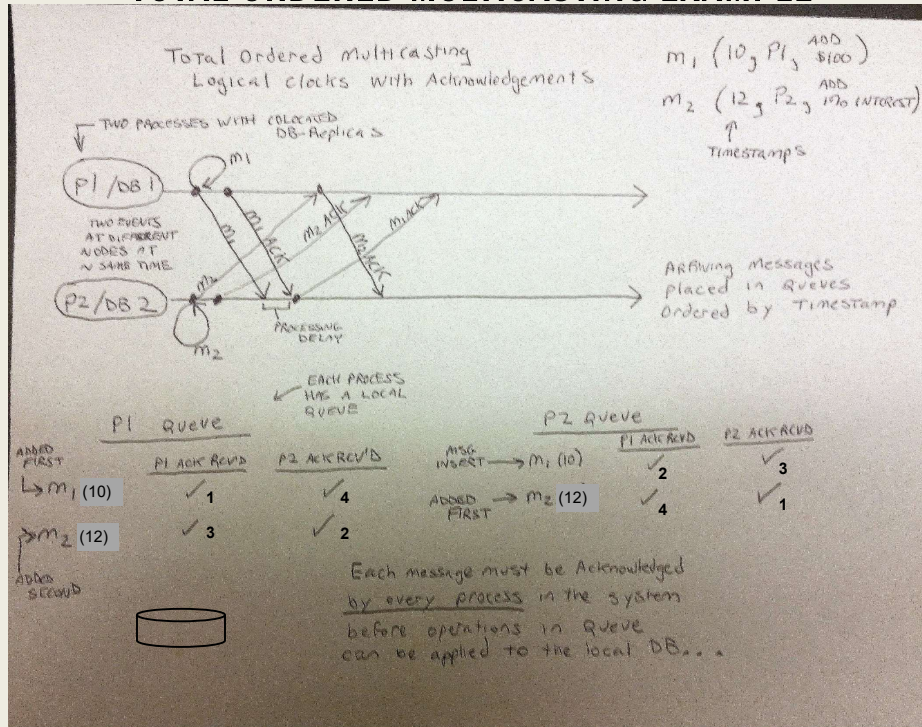 TOTAL ORDERED MULTICASTING EXAMPLE
Total Ordered Multicasting
Logical Clocks with Acknowledgements
m1 (10, P1, ADD $100)
m2 (12, P2, ADD 1% INTEREST)
TIMESTAMPS
TWO PROCESSES WITH COLOCATED
DB-Replicas
P1/DB1
m1
TWO EVENTS
AT DIFFERENT
NODES AT
~ SAME TIME
m1
m1 ACK
m2
m2 ACK
m2 ACK
m1 ACK
P2/DB2
m2
PROCESSING
DELAY
Arriving Messages
placed in Queues
Ordered by Timestamp
EACH PROCESS
HAS A LOCAL
QUEUE
P1 Queue
P1 ACK RCV'D P2 ACK RCV'D
ADDED
FIRST
m1 (10) ✓1 ✓4
m2 (12) ✓3 ✓2
ADDED
SECOND
P2 Queue
P1 ACK RCVD P2 ACK RCVD
MSG
INSERT → m1 (10) ✓2 ✓3
ADDED
FIRST → m2 (12) ✓4 ✓1
Each message must be Acknowledged
by every process in the system
before operations in Queue
can be applied to the local DB...